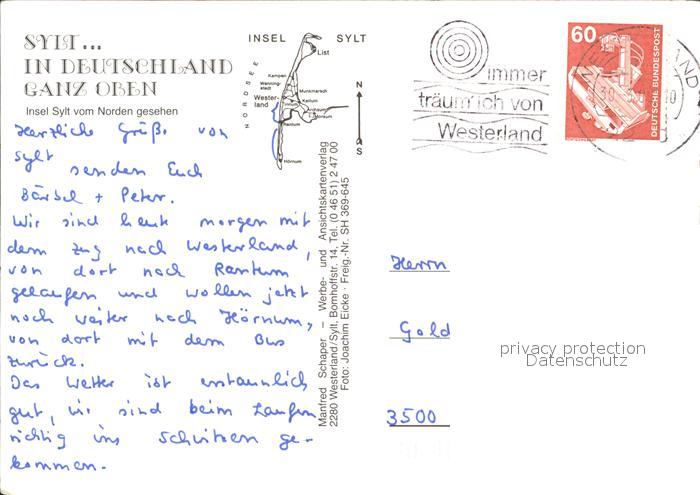 SYLT...
IN DEUTSCHLAND
GANZ OBEN
Insel Sylt vom Norden gesehen
Herzliche Grüße von
Sylt senden Euch
Bärbel + Peter.
Wir sind heute morgen mit
dem Zug nach Westerland,
von dort nach Rantum
gelaufen und wollen jetzt
noch weiter nach Hörnum,
von dort mit dem Bus
zurück.
Das Wetter ist erstaunlich
gut, wir sind beim Laufen
richtig ins Schwitzen ge-
kommen.
INSEL SYLT
NORDSEE
List
Kampen
Wenning-
stedt
Wester-
land
Munkmarsch
Keitum
Archsum
Morsum
Rantum
Hörnum
N
S
Manfred Schaper – Werbe- und Ansichtskartenverlag
2280 Westerland/Sylt, Bomhoffstr. 14, Tel. (0 46 51) 2 47 00
Foto: Joachim Eicke · Freig.-Nr. SH 369-645
immer
träum ich von
Westerland
60
DEUTSCHE BUNDESPOST
Herrn
Gold
3500
privacy protection
Datenschutz